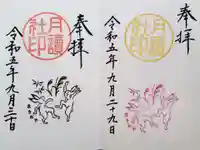 奉拝
月讀
社印
令和五年九月二十九日
奉拝
月讀
社印
令和五年九月三十日